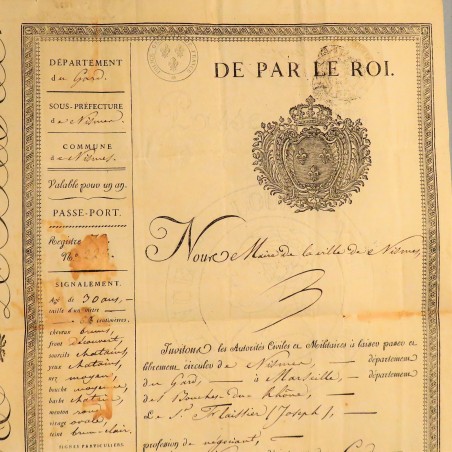 DÉPARTEMENT
du Gard.
SOUS-PRÉFECTURE
de Nismes.
COMMUNE
de Nismes.
Valable pour un an.
PASSE-PORT.
Registre
N.º
SIGNALEMENT.
Agé de 30 ans,
taille d'un mètre
centimètres,
cheveux bruns,
front découvert,
sourcils chatains,
yeux chatains,
nez moyen,
bouche moyenne,
barbe chataine,
menton rond,
visage ovale,
teint brun-clair.
SIGNES PARTICULIERS.
DE PAR LE ROI.
Nous Maire de la ville de Nismes,
Invitons les Autorités Civiles et Militaires à laisser passer et
librement circuler de Nismes, département
du Gard, à Marseille, département
des Bouches du Rhône,
Le S.r Flaissier (Joseph),
profession de négociant,